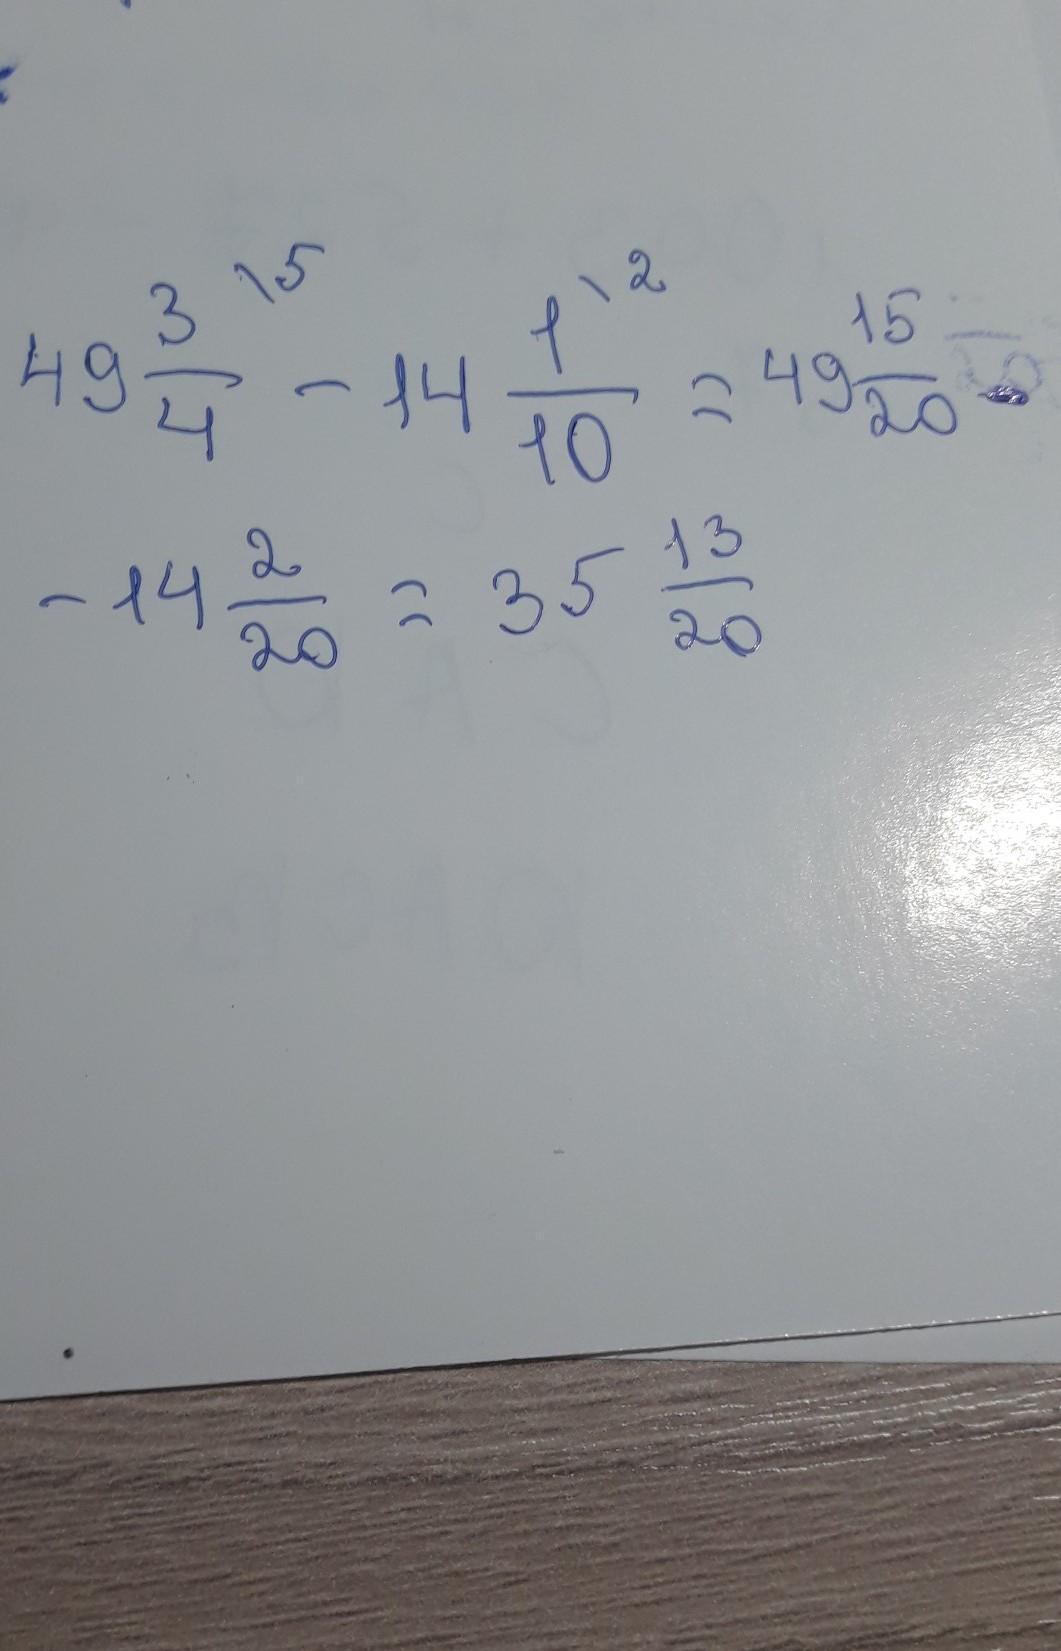 49 3/4 \5 - 14 1/10 \2 = 49 15/20
- 14 2/20 = 35 13/20